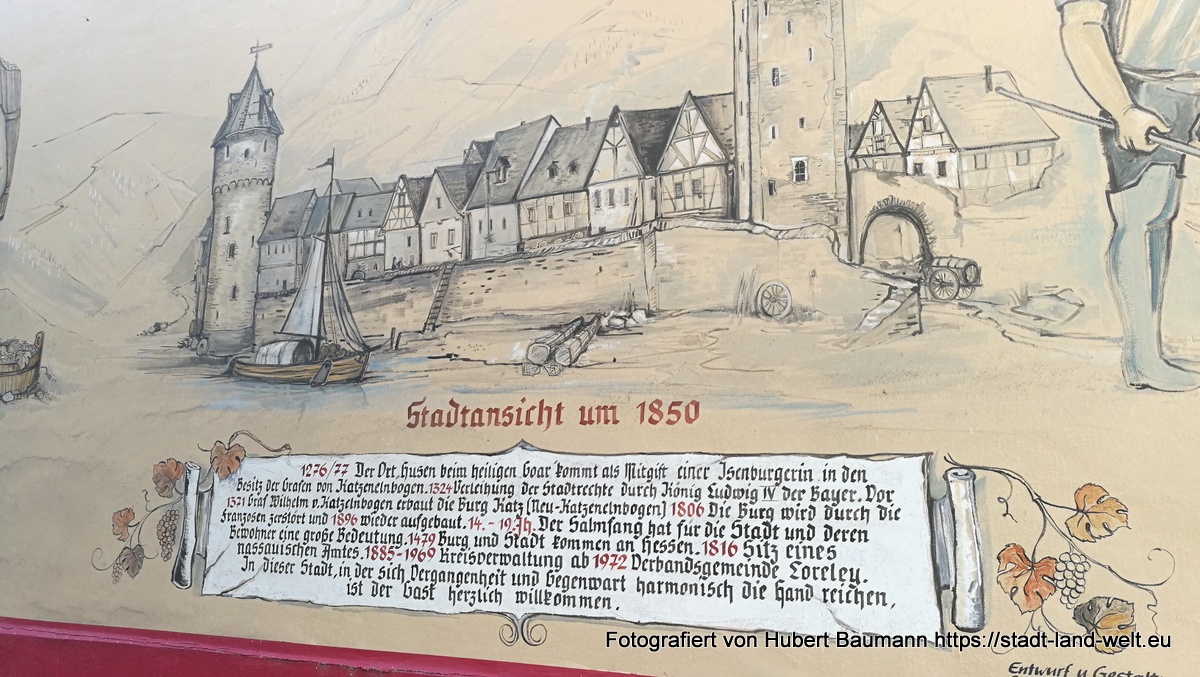 Stadtansicht um 1850
1276/77 Der Ort, Husen beim heiligen Goar kommt als Mitgift einer Isenburgerin in den
Besitz der Grafen von Katzenelnbogen. 1324 Verleihung der Stadtrechte durch König Ludwig IV der Bayer. Vor
1371 Graf Wilhelm v. Katzelnbogen erbaut die Burg Katz (Neu-Katzenelnbogen) 1806 Die Burg wird durch die
Franzosen zerstört und 1896 wieder aufgebaut. 14. - 19. Jh. Der Salmfang hat für die Stadt und deren
Bewohner eine große Bedeutung. 1479 Burg und Stadt kommen an Hessen. 1816 Sitz eines
nassauischen Amtes. 1885-1969 Kreisverwaltung ab 1972 Verbandsgemeinde Loreley.
In dieser Stadt, in der sich Vergangenheit und Gegenwart harmonisch die Hand reichen,
ist der Gast herzlich willkommen.
Fotografiert von Hubert Baumann https://stadt-land-welt.eu
Entwurf u Gestalt